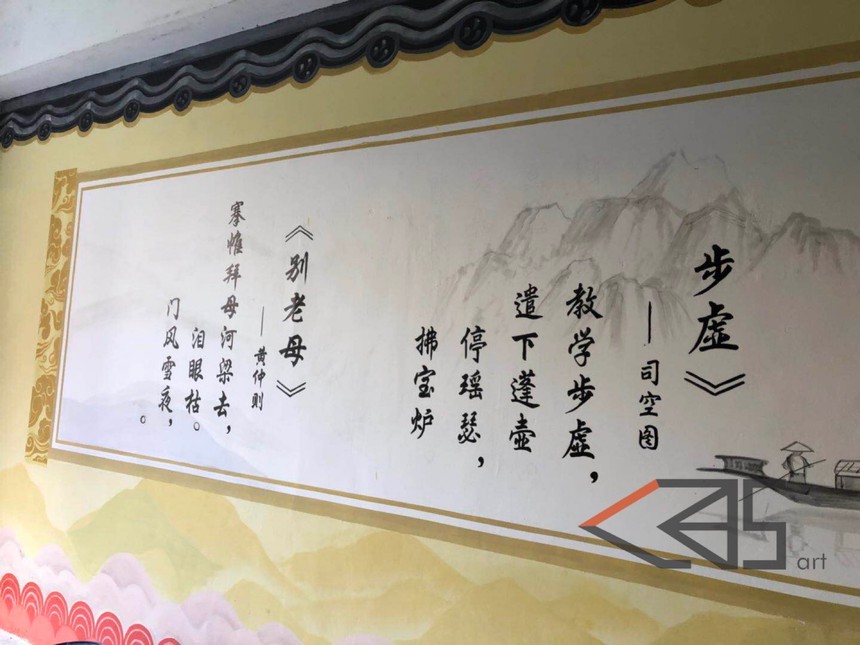 步虚》
—司空图
教学步虚，
遣下蓬壶
停瑶瑟，
拂宝炉
《别老母》
—黄仲则
搴帷拜母河梁去，
泪眼枯。
门风雪夜，
。
art